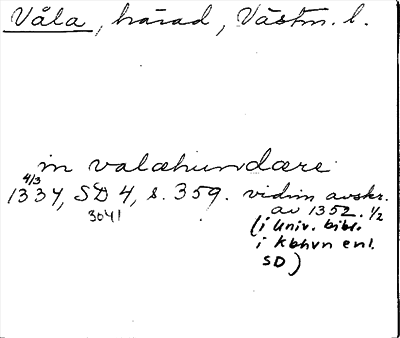 Våla, härad, Västm. l.
in valæhundære
4/3
1334, SD 4, s. 359. vidim avskr.
3041
av 1352. 1/2
(i Univ. bibl.
i Kbhvn enl.
SD)